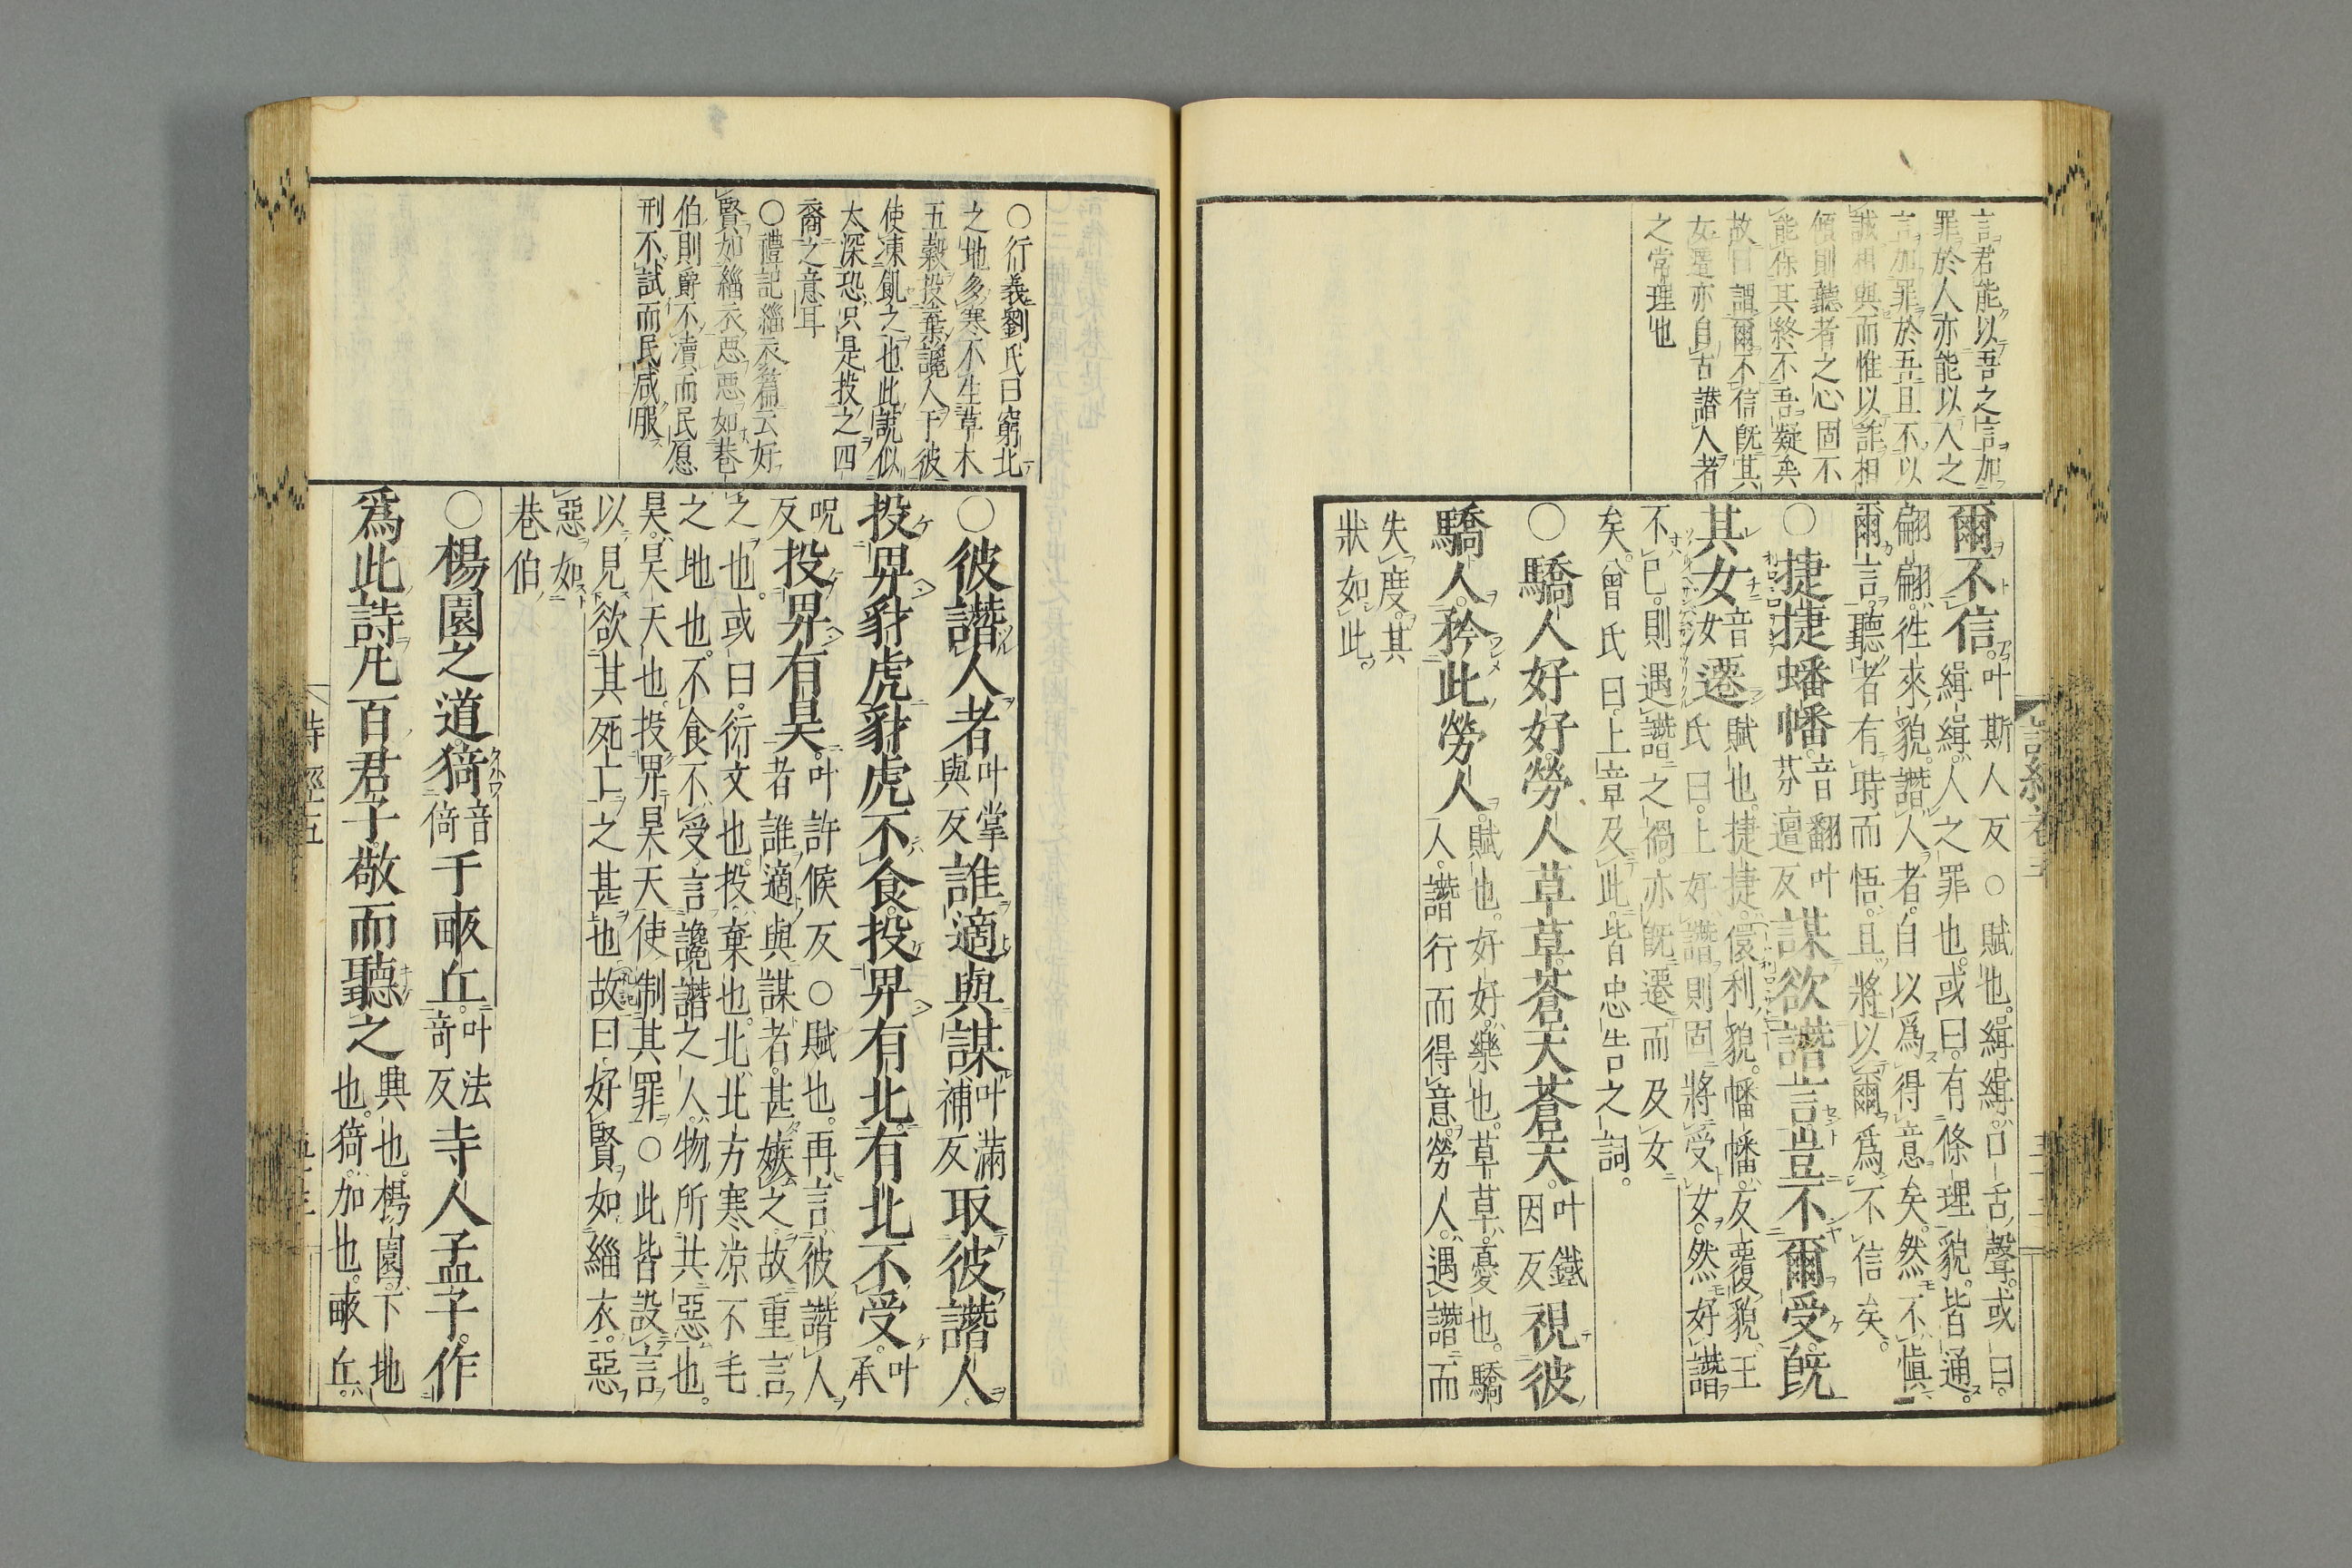 言君能以吾之言加
罪於人亦能以人之
言加罪於吾且不以
誠相與而惟以詐相
傾則聽者之心固不
能保其終不吾疑矣
故曰謂爾不信既其
女遷亦自古譖人者
之常理也
爾不信。叶斯人反○賦也。緝緝。口舌聲。或曰。
緝緝。人之罪也。或曰。有條理貌。皆通。
翩翩。徃來貌。譖人者。自以爲得意矣。然不愼
爾言。聽者有時而悟。且將以爾爲不信矣。
○捷捷幡幡。音翻叶芬邅反謀欲譖言。豈不爾受。既
其女音女遷賦也。捷捷。儇利貌。幡幡。反覆貌。王
氏曰。上好譖。則固將受女。然好譖
不已。則遇譖之禍。亦既遷而及女
矣。曾氏曰。上章及此。皆忠告之詞。
○驕人好好。勞人草草。蒼天蒼天。叶鐵因反視彼
驕人。矜此勞人。賦也。好好。樂也。草草。憂也。驕
人。譖行而得意。勞人。遇譖而
失度。其
狀如此。
○行義劉氏曰窮北
之地多寒不生草木
五穀投棄讒人于彼
使凍飢之也此說似
太深恐只是投之四
裔之意耳
○禮記緇衣篇云好
賢如緇衣惡惡如巷
伯則爵不瀆而民愿
刑不試而民咸服
○彼譖人者叶掌與反誰適與謀叶滿補反取彼譖人
投畀豺虎豺虎不食。投畀有北。有北不受。叶承
呪反投畀有昊。叶許候反○賦也。再言彼譖人
者誰適與謀者。甚嫉之。故重言
之也。或曰。衍文也。投。棄也。北。北方寒凉不毛
之地也。不食不受。言讒譖之人。物所共惡也。
昊。昊天也。投畀昊天。使制其罪○此皆設言
以見欲其死亡之甚也。故曰。好賢如緇衣。惡
惡如
巷伯
○楊園之道。猗音倚千畞丘。叶法奇反寺人孟子。作
爲此詩。凡百君子。敬而聽之典也。楊園。下地也。猗。加也。畞丘。